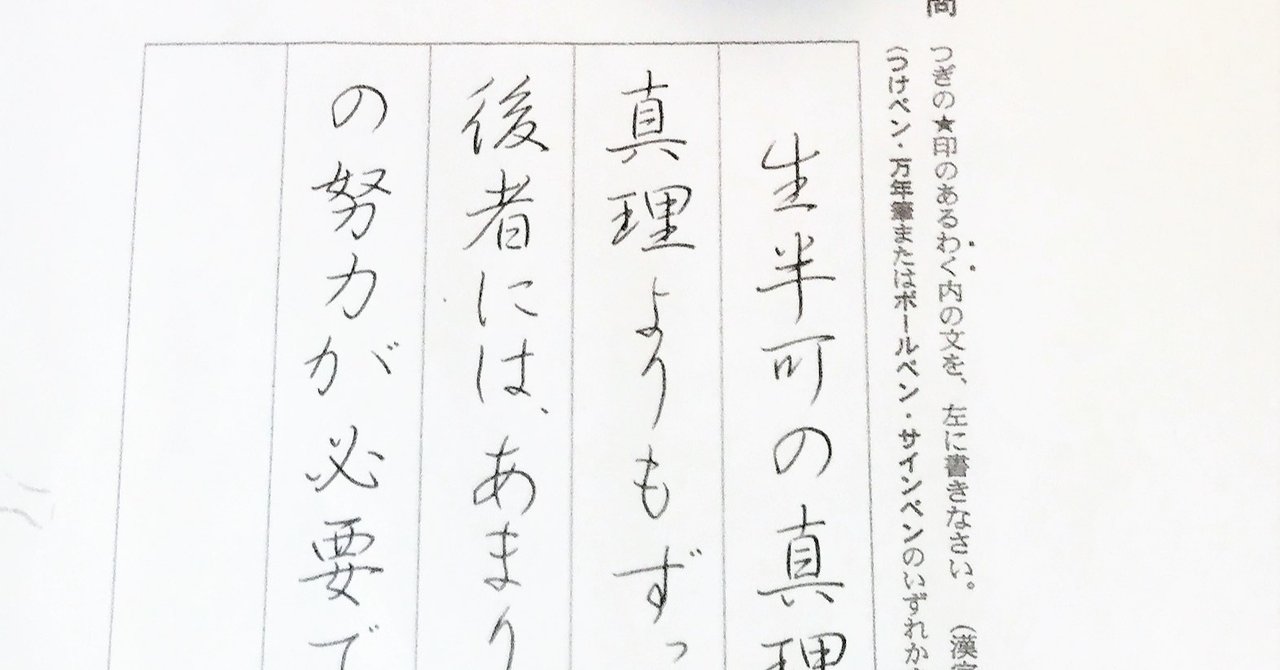 問
つぎの★印のあるわく内の文を、左に書きなさい。(漢字
(つけペン・万年筆またはボールペン・サインペンのいずれか
生半可の真理
真理よりもずっ
後者には、あまり
の努力が必要で